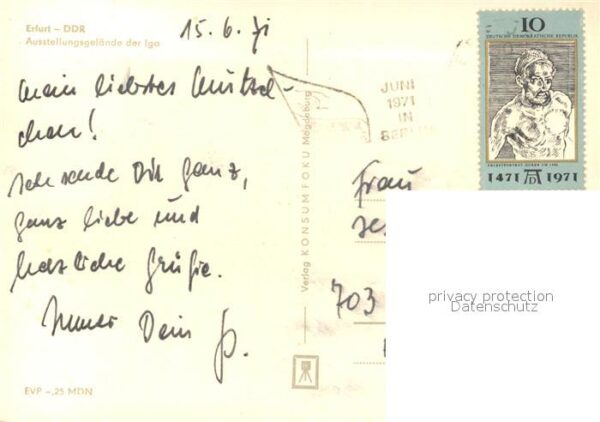 Erfurt – DDR
Ausstellungsgelände der Iga
15.6.71
Mein liebstes Mutzel-
chen!
Ich sende Dir ganz,
ganz liebe und
herzliche Grüße.
Immer Dein
EVP –,25 MDN
Verlag KONSUMFOKU Magdeburg
JUNI
1971
IN
BERLIN
10
DEUTSCHE DEMOKRATISCHE REPUBLIK
1471 AD 1971
Frau
703
privacy protection
Datenschutz